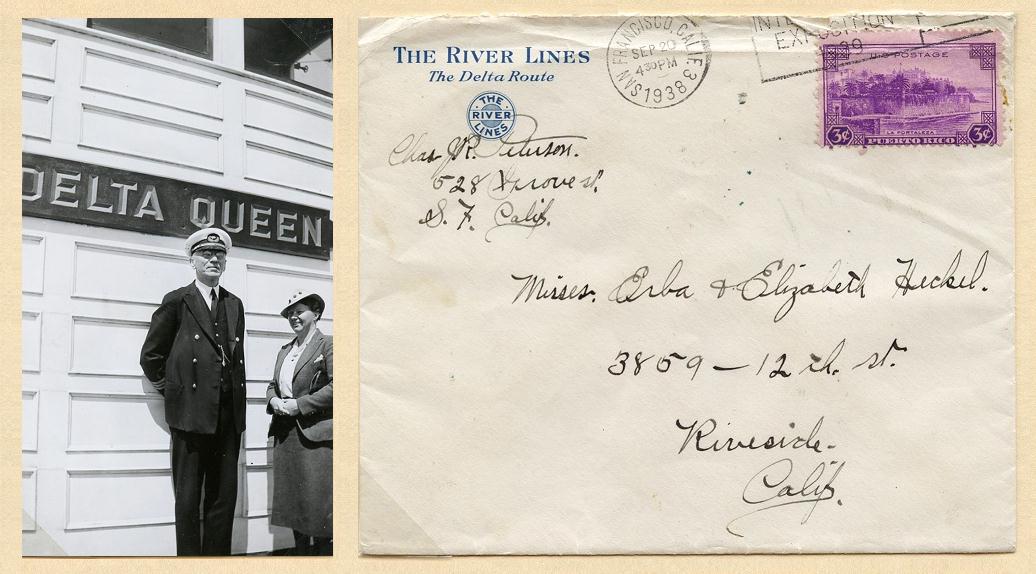 DELTA QUEEN
THE RIVER LINES
The Delta Route
THE
RIVER
LINES
SAN FRANCISCO, CALIF. 3
SEP 20
430 PM
1938
EXPOSITION
39
U.S. POSTAGE
LA FORTALEZA
3¢ PUERTO RICO 3¢
Chas. W. Peterson.
528 Grove st.
S. F. Calif.
Misses. Erba & Elizabeth Heckel.
3859 - 12 th. st.
Riveside.
Calif.